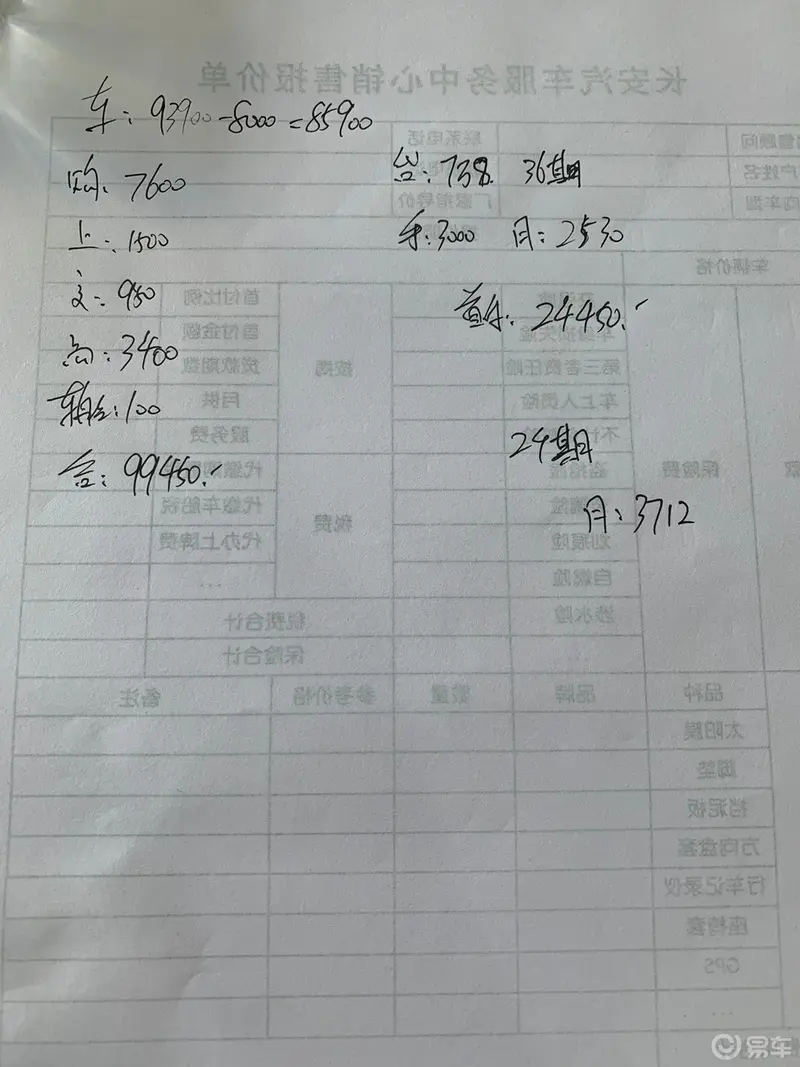 长安汽车服务中心销售报价单
车: 93900-8000=85900
购: 7600
上: 1500
交: 950
商: 3400
车船: 100
合: 99450.
台: 738. 36期
手: 3000 月: 2530
首付: 24450.
24期
月: 3712
销售顾问
联系电话
客户姓名
意向车型
厂家指导价
车辆价格
首付比例
首付金额
车辆损失险
贷款期数
按揭
第三者责任险
月供
车上人员险
服务费
保险费
盗抢险
税费
代缴车船税
划痕险
代办上牌费
自燃险
...
涉水险
税费合计
...
保险合计
品种
品牌
数量
参考价格
备注
太阳膜
脚垫
挡泥板
方向盘套
行车记录仪
座椅套
GPS
...
易车